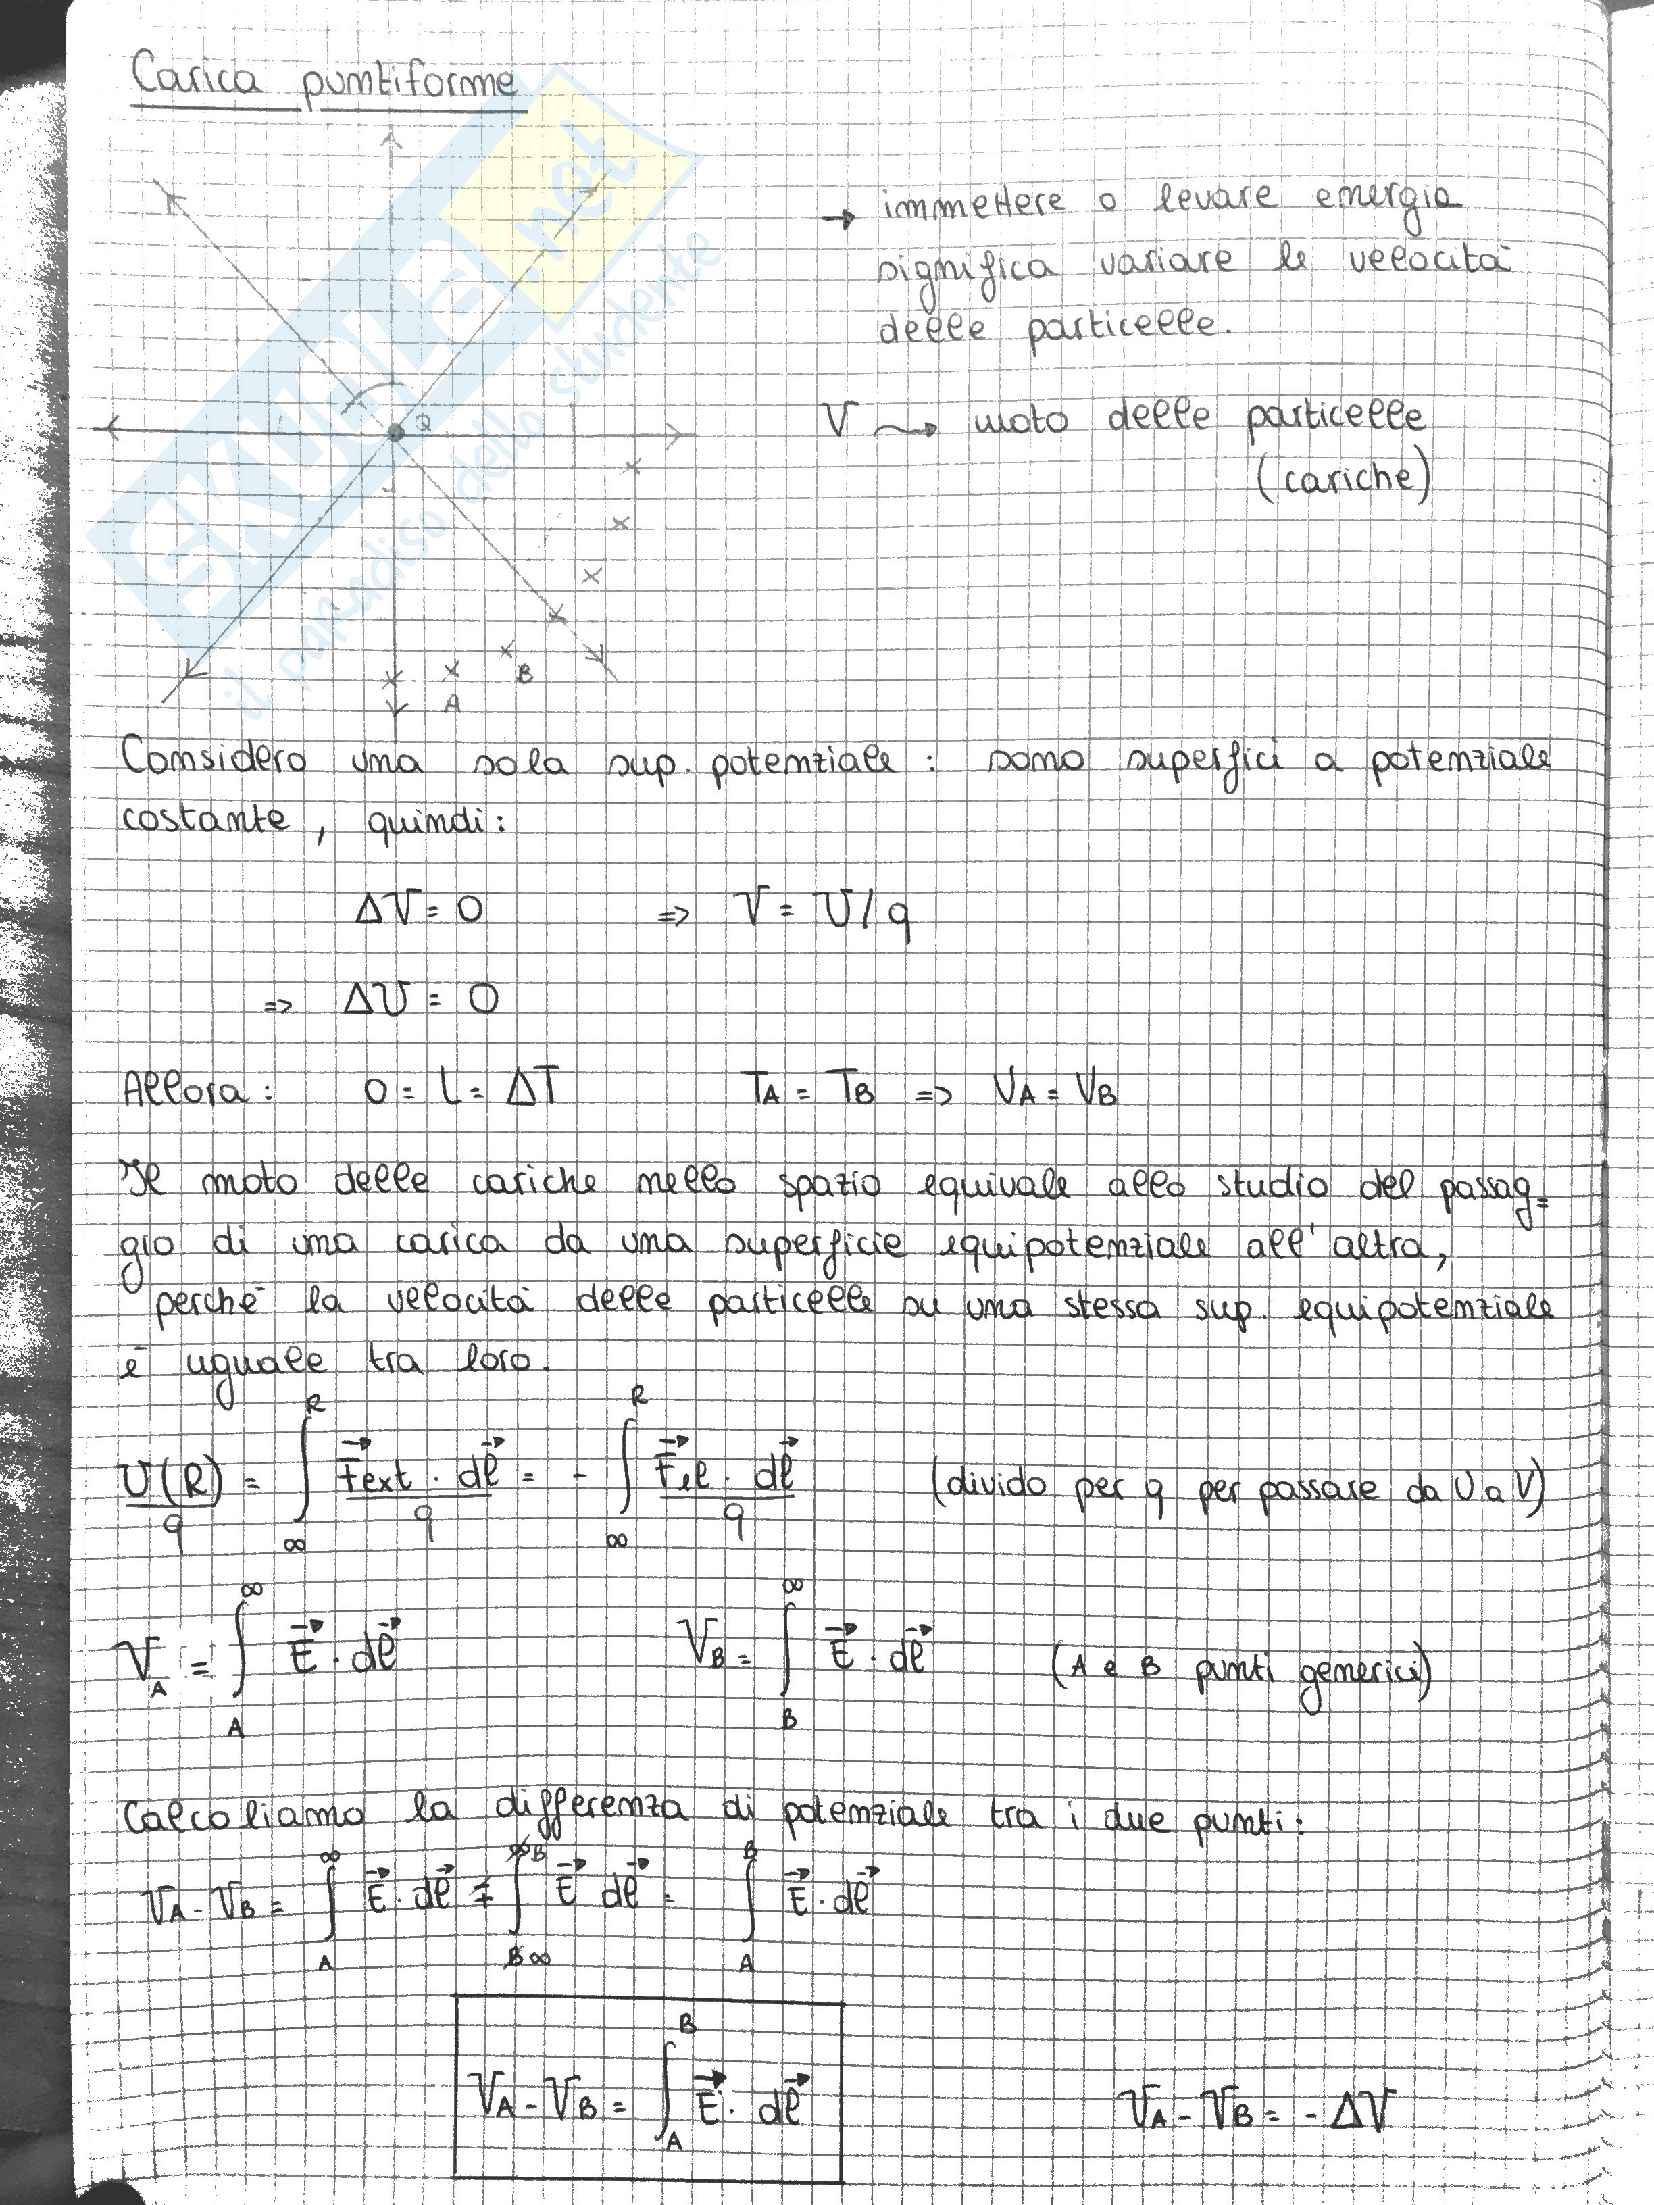 Carica puntiforme
→ immettere o levare energia
significa variare le velocità
delle particelle.
V ⤳ moto delle particelle
(cariche)
Q
A
B
SKUOLA.net
il paradiso dello studente
Considero una sola sup. potenziale : sono superfici a potenziale
costante, quindi:
ΔV = 0 => V = U/q
=> ΔU = 0
Allora: 0 = L = ΔT TA = TB => VA = VB
Il moto delle cariche nello spazio equivale allo studio del passag=
gio di una carica da una superficie equipotenziale all'altra,
perché la velocità delle particelle su una stessa sup. equipotenziale
è uguale tra loro.
U(R)/q = ∫_∞^R F⃗ext · dl⃗ / q = - ∫_∞^R F⃗el · dl⃗ / q (divido per q per passare da U a V)
V_A = ∫_A^∞ E⃗ · dl⃗ V_B = ∫_B^∞ E⃗ · dl⃗ (A e B punti generici)
Calcoliamo la differenza di potenziale tra i due punti:
V_A - V_B = ∫_A^∞ E⃗ · dl⃗ + ∫_∞^B E⃗ dl⃗ = ∫_A^B E⃗ · dl⃗
V_A - V_B = ∫_A^B E⃗ · dl⃗ V_A - V_B = - ΔV